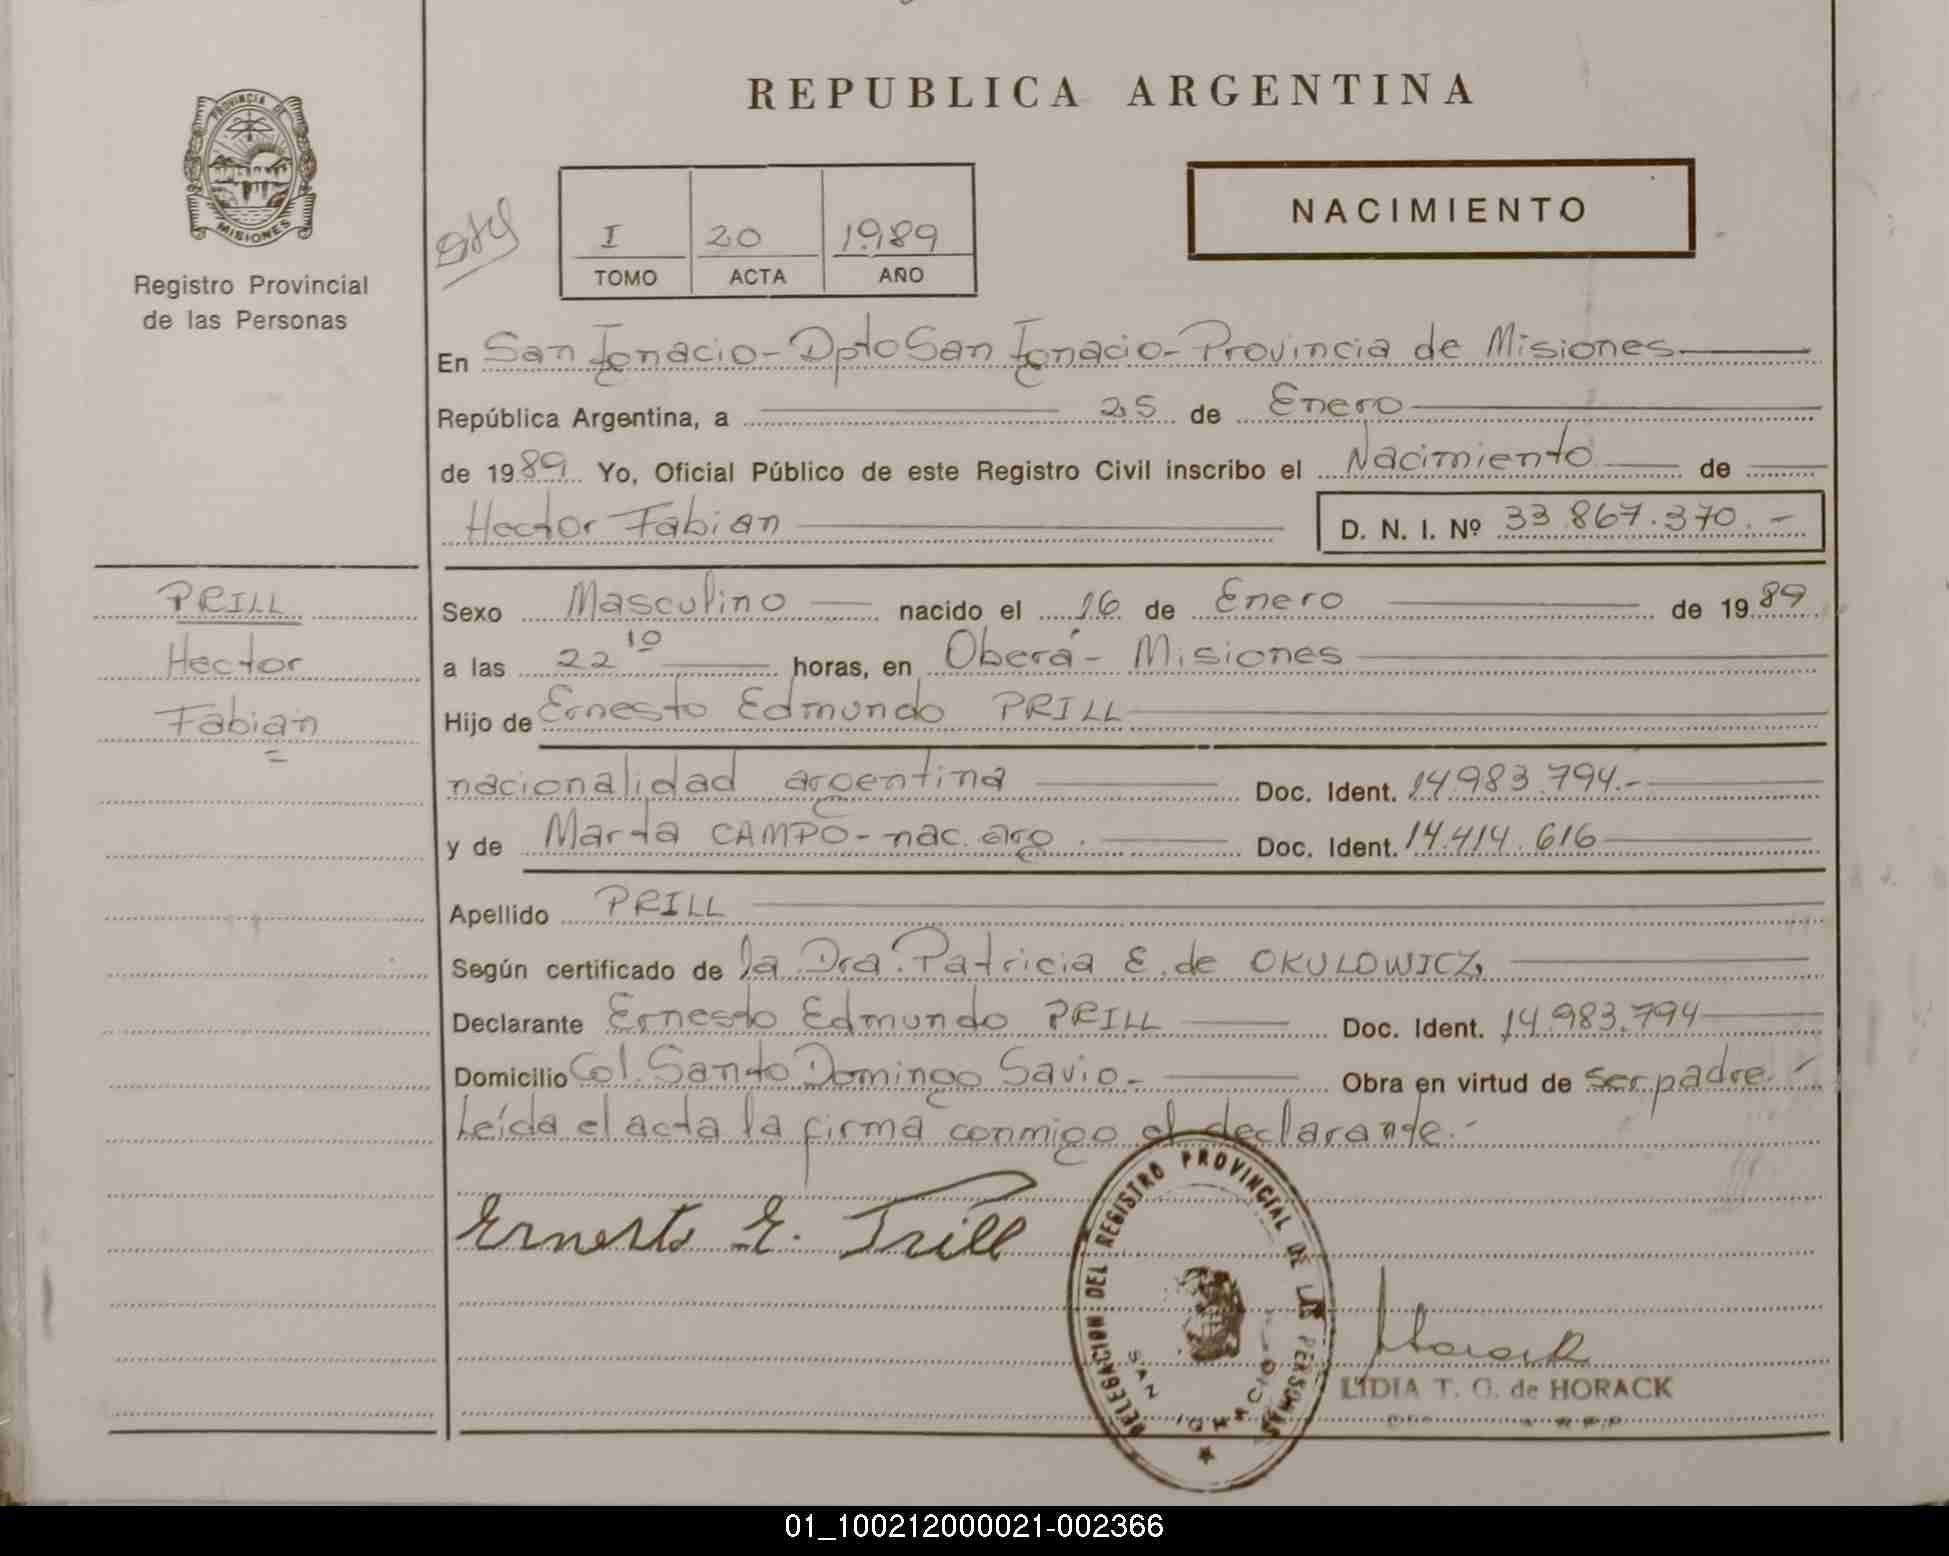 REPUBLICA ARGENTINA
PROVINCIA DE
MISIONES
Registro Provincial
de las Personas
I 20 1989
TOMO ACTA AÑO
NACIMIENTO
En San Ignacio - Dpto San Ignacio - Provincia de Misiones
República Argentina, a 25 de Enero
de 1989 Yo, Oficial Público de este Registro Civil inscribo el Nacimiento de
Hector Fabian D. N. I. Nº 33.867.370.-
PRILL
Hector
Fabian
Sexo Masculino nacido el 16 de Enero de 1989
a las 22 10 horas, en Oberá - Misiones
Hijo de Ernesto Edmundo PRILL
nacionalidad argentina Doc. Ident. 14.983.794.-
y de Marta CAMPO - nac. arg. Doc. Ident. 14.414.616
Apellido PRILL
Según certificado de la Dra. Patricia E. de OKULOWICZ
Declarante Ernesto Edmundo PRILL Doc. Ident. 14.983.794
Domicilio Col. Santo Domingo Savio.- Obra en virtud de ser padre.-
Leída el acta la firma conmigo el declarante.-
Ernesto E. Prill
DELEGACION DEL REGISTRO PROVINCIAL DE LAS PERSONAS
SAN IGNACIO
Horack
LIDIA T. G. de HORACK
01_100212000021-002366